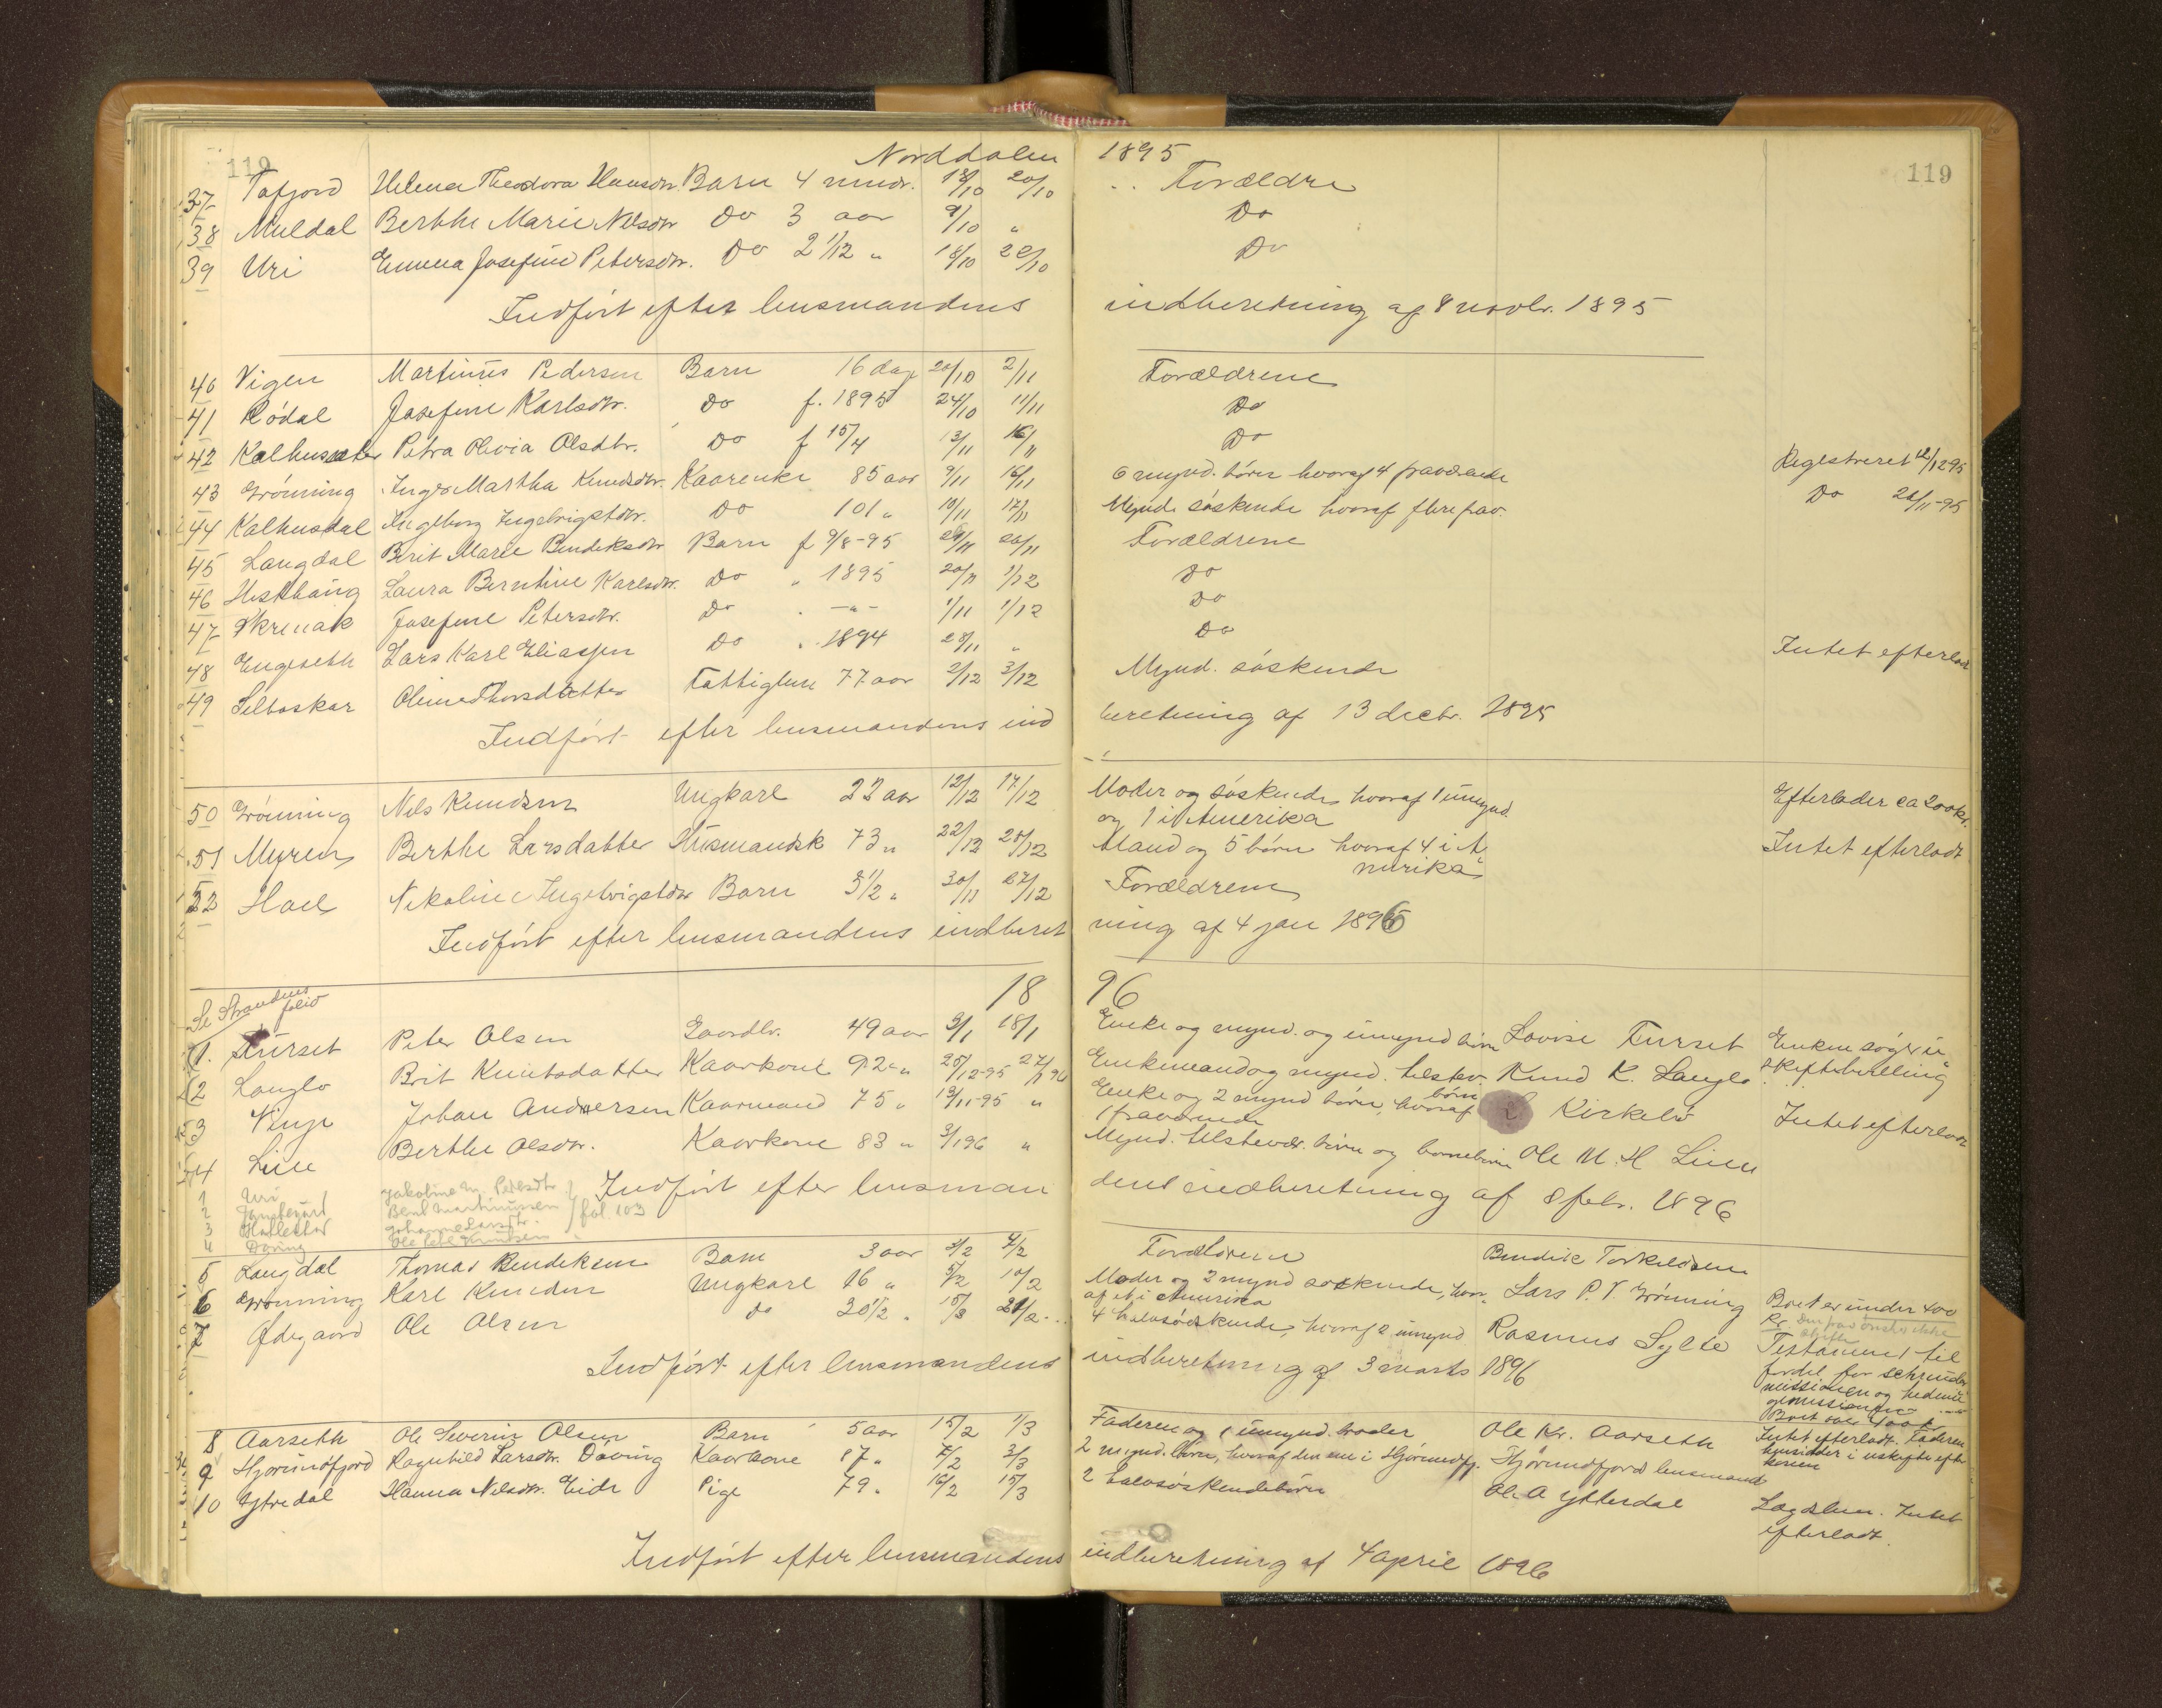 119 Norddalen 1895 119
37 Tafjord Helena Theodora Hansdtr. Barn 4 mndr. 18/10 20/10 Forældre
38 Muldal Berthe Marie Nilsdtr Do 3 aar 9/10 " Do
39 Uri Emma Josefine Petersdtr. Do 2 1/12 " 18/10 20/10 Do
Indført efter lensmandens indberetning af 8 novbr. 1895
40 Vigen Martinus Pedersen Barn 16 dag 20/10 2/11 Forældrene
41 Rødal Josefine Karlsdtr. Do f. 1895 24/10 11/11 Do
42 Kalhussæter Petra Olivia Olsdtr. Do f 15/4 13/11 16/11 Do
43 Grønning Inger Martha Knudsdtr. Kaarenke 85 aar 9/11 16/11 6 mynd. børn hvoraf 4 fraværende Registreret 12/12 95
44 Kalhusdal Ingeborg Ingebrigtsdtr. Do 101 " 10/11 17/11 Mynd. søskende hvoraf flere frav. Do 26/11-95
45 Langdal Berit Marie Bendiksdtr Barn f 9/8-95 Forældrene
46 Hesthaug Laura Berntine Karlsdtr. Do " 1895 20/11 1/12 Do
47 Skrenak Josefine Petersdtr. Do " -"- 1/11 1/12 Do
48 Engeseth Lars Karl Eliassen Do " 1894 28/11 " Do
49 Selboskar Oline Thorsdatter Fattiglem 77 aar 2/12 3/12 Mynd. søskende Intet efterladt
Indført efter lensmandens indberetning af 13 decbr. 1895
50 Grønning Nils Knudsen Ungkarl 22 aar 12/12 17/12 Moder og søskende, hvoraf 1 umynd. og 1 i Amerika Efterlader ca 200 kr.
51 Myren Berthe Larsdatter Husmandsk 73 " 22/12 28/12 Mand og 5 børn hvoraf 4 i Amerika Intet efterladt
52 Hoel Nikoline Ingebrigtsdtr Barn 3 1/2 " 30/11 27/12 Forældrene
Indført efter lensmandens indberetning af 4 jan 1896
Se Strandens folio 1896
1. Furset Peter Olsen Gaardbr. 49 aar 3/1 18/1 Enke og mynd. og umynd børn Lovise Furset Enken søger uskiftebevilling
2 Langlo Brit Knutsdatter Kaarkone 92 " 25/12-95 27/1 96 Enkemand og mynd. tilstev. børn Knud K. Langlo
3 Vinje Johan Andersen Kaarmand 75 " 13/11-95 " Enke og 2 mynd børn, hvoraf 1 fraværende Kirkebø Intet efterladt
4 Lien Berthe Olsdtr. Kaarkone 83 " 3/1 96 " Mynd. tilstevær. børn og børnebørn Ole M. H Lien
1 Uri Jakobine M. Pedersdtr
2 Bent Martinussen fol. 103
3 Johanne Larsdtr.
4 Døving Ole Peter Knutsen
Indført efter lensmandens indberetning af 8 febr. 1896
5 Langdal Thomas Bendiksen Barn 3 aar 2/2 7/2 Forældrene Bendik Torkeldsen
6 Grønning Karl Knudsen Ungkarl 16 " 5/2 10/2 Moder og 2 mynd søskende, hvoraf et i Amerika Lars P. V. Grønning Boet er under 400 kr.
7 Ødegaard Ole Olsen do 20 1/2 " 4 halvsødskende, hvoraf 2 umynd Rasmus Sylte Testament til fordel for schreudermissionen og hedningemissionen Boet ca 400 k
Indført efter lensmandens indberetning af 3 marts 1896
8 Aarseth Ole Severin Olsen Barn 5 aar 15/2 1/3 Faderen og 1 umynd. broder Ole Kr. Aarseth Intet efterladt. Faderen hensidder i uskifte efter konen
9 Hjørundfjord Ragnhild Larsdtr. Døving Kaarkone 87 " 7/2 3/3 2 mynd. børn, hvoraf den ene i Hjørundfj. Hjørundfjord lensmand
10 Ytredal Hanna Nilsdtr. Eide Pige 79 " 16/2 15/3 2 halvsøskendebørn Ole A Ytterdal Lægdslem. Intet efterladt.
Indført efter lensmandens indberetning af 4 april 1896